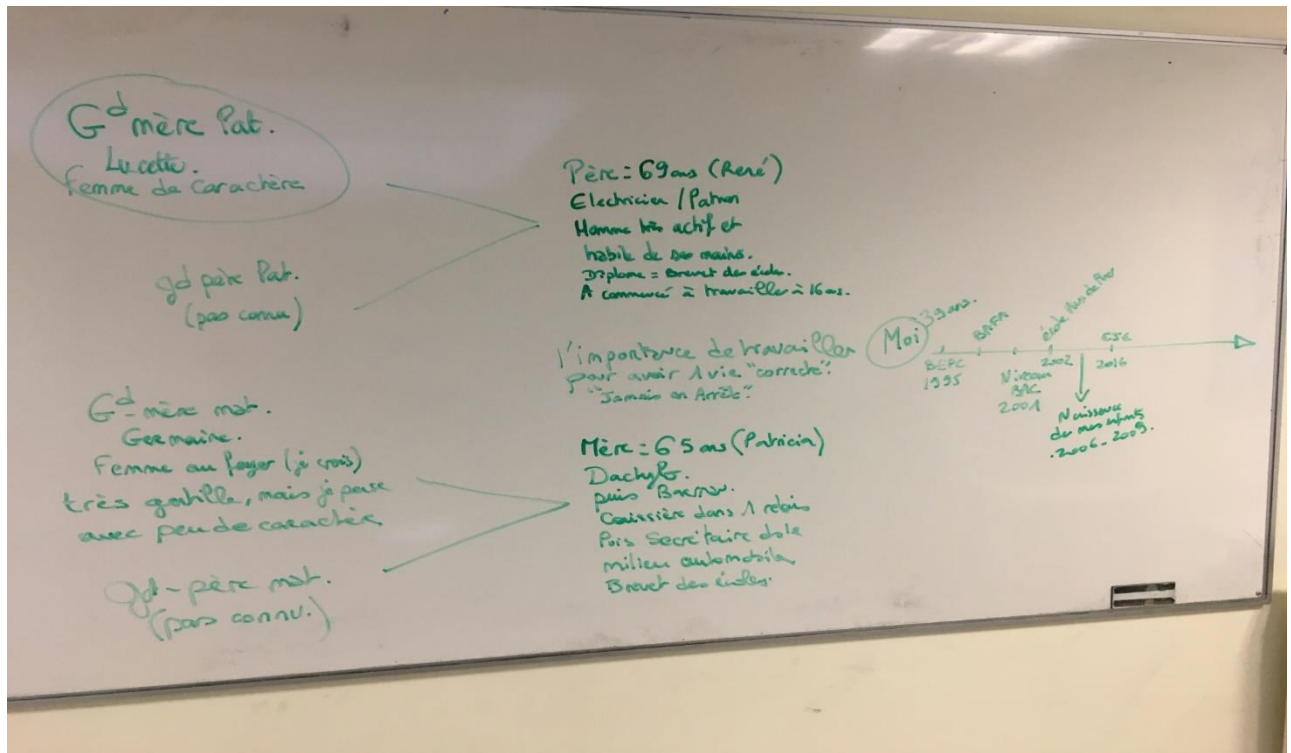 Gd mère Pat.
Lucette.
Femme de Caractère
gd père Pat.
(pas connu)
Gd-mère mat.
Germaine.
Femme au foyer (je crois)
très gentille, mais je pense
avec peu de caractère
gd-père mat.
(pas connu.)
Père = 69 ans (René)
Electricien / Patron
Homme très actif et
habile de ses mains.
Diplome = Brevet des écoles.
A commencé à travailler à 16 ans.
l'importance de travailler
pour avoir 1 vie "correcte".
"Jamais on Arrête".
Mère = 65 ans (Patricia)
Dactylo.
puis
Caissière dans 1 relais
Puis Secrétaire ds le
milieu automobile
Brevet des écoles.
Moi 39 ans.
BEPC
1995
BAFA
Niveau
BAC
2001
école
2002
2016
Naissance
de mes enfants
.2006-2009.